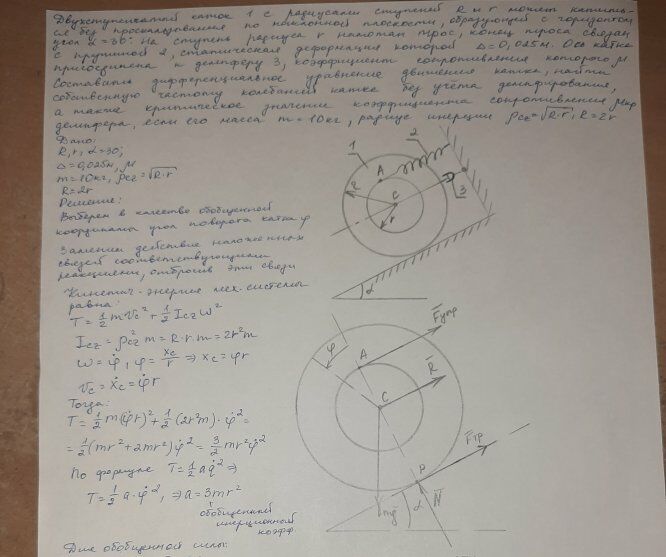 Двухступенчатый каток 1 с радиусами ступеней R и r может катить-
ся без проскальзывания по наклонной плоскости, образующей с горизонтом
угол α=30°. На ступень радиуса r намотан трос, конец троса связан
с пружиной 2, статическая деформация которой Δ=0,025м. Ось катка
присоединена к демпферу 3, коэффициент сопротивления которого μ
Составить дифференциальное уравнение движения катка, найти
собственную частоту колебаний катка без учета демпфирования,
а также критическое значение коэффициента сопротивления μкр
демпфера, если его масса m=10кг, радиус инерции ρcz=√R·r, R=2r
Дано:
R, r, α=30°;
Δ=0,025м, μ
m=10кг, ρcz=√R·r
R=2r
Решение:
Выберем в качестве обобщенной
координаты угол поворота катка φ
Заменим действие наложенных
связей соответствующими
реакциями, отбросив эти связи
Кинетич. энергия мех. системы
равна:
T=1/2 mVc²+1/2 Iczω²
Icz=ρcz²m=R·r·m=2r²m
ω=φ̇, φ=xc/r ⇒ xc=φr
Vc=ẋc=φ̇r
Тогда:
T=1/2 m(φ̇r)²+1/2(2r²m)·φ̇²=
=1/2(mr²+2mr²)φ̇²=3/2 mr²φ̇²
По формуле T=1/2 aq̇² ⇒
T=1/2 a·φ̇², ⇒ a=3mr²
обобщенный
инерционный
коэфф
Для обобщенной силы:
1
2
A
R
C
r
3
α
Fупр
φ
A
R
C
Fтр
P
mg
α
N